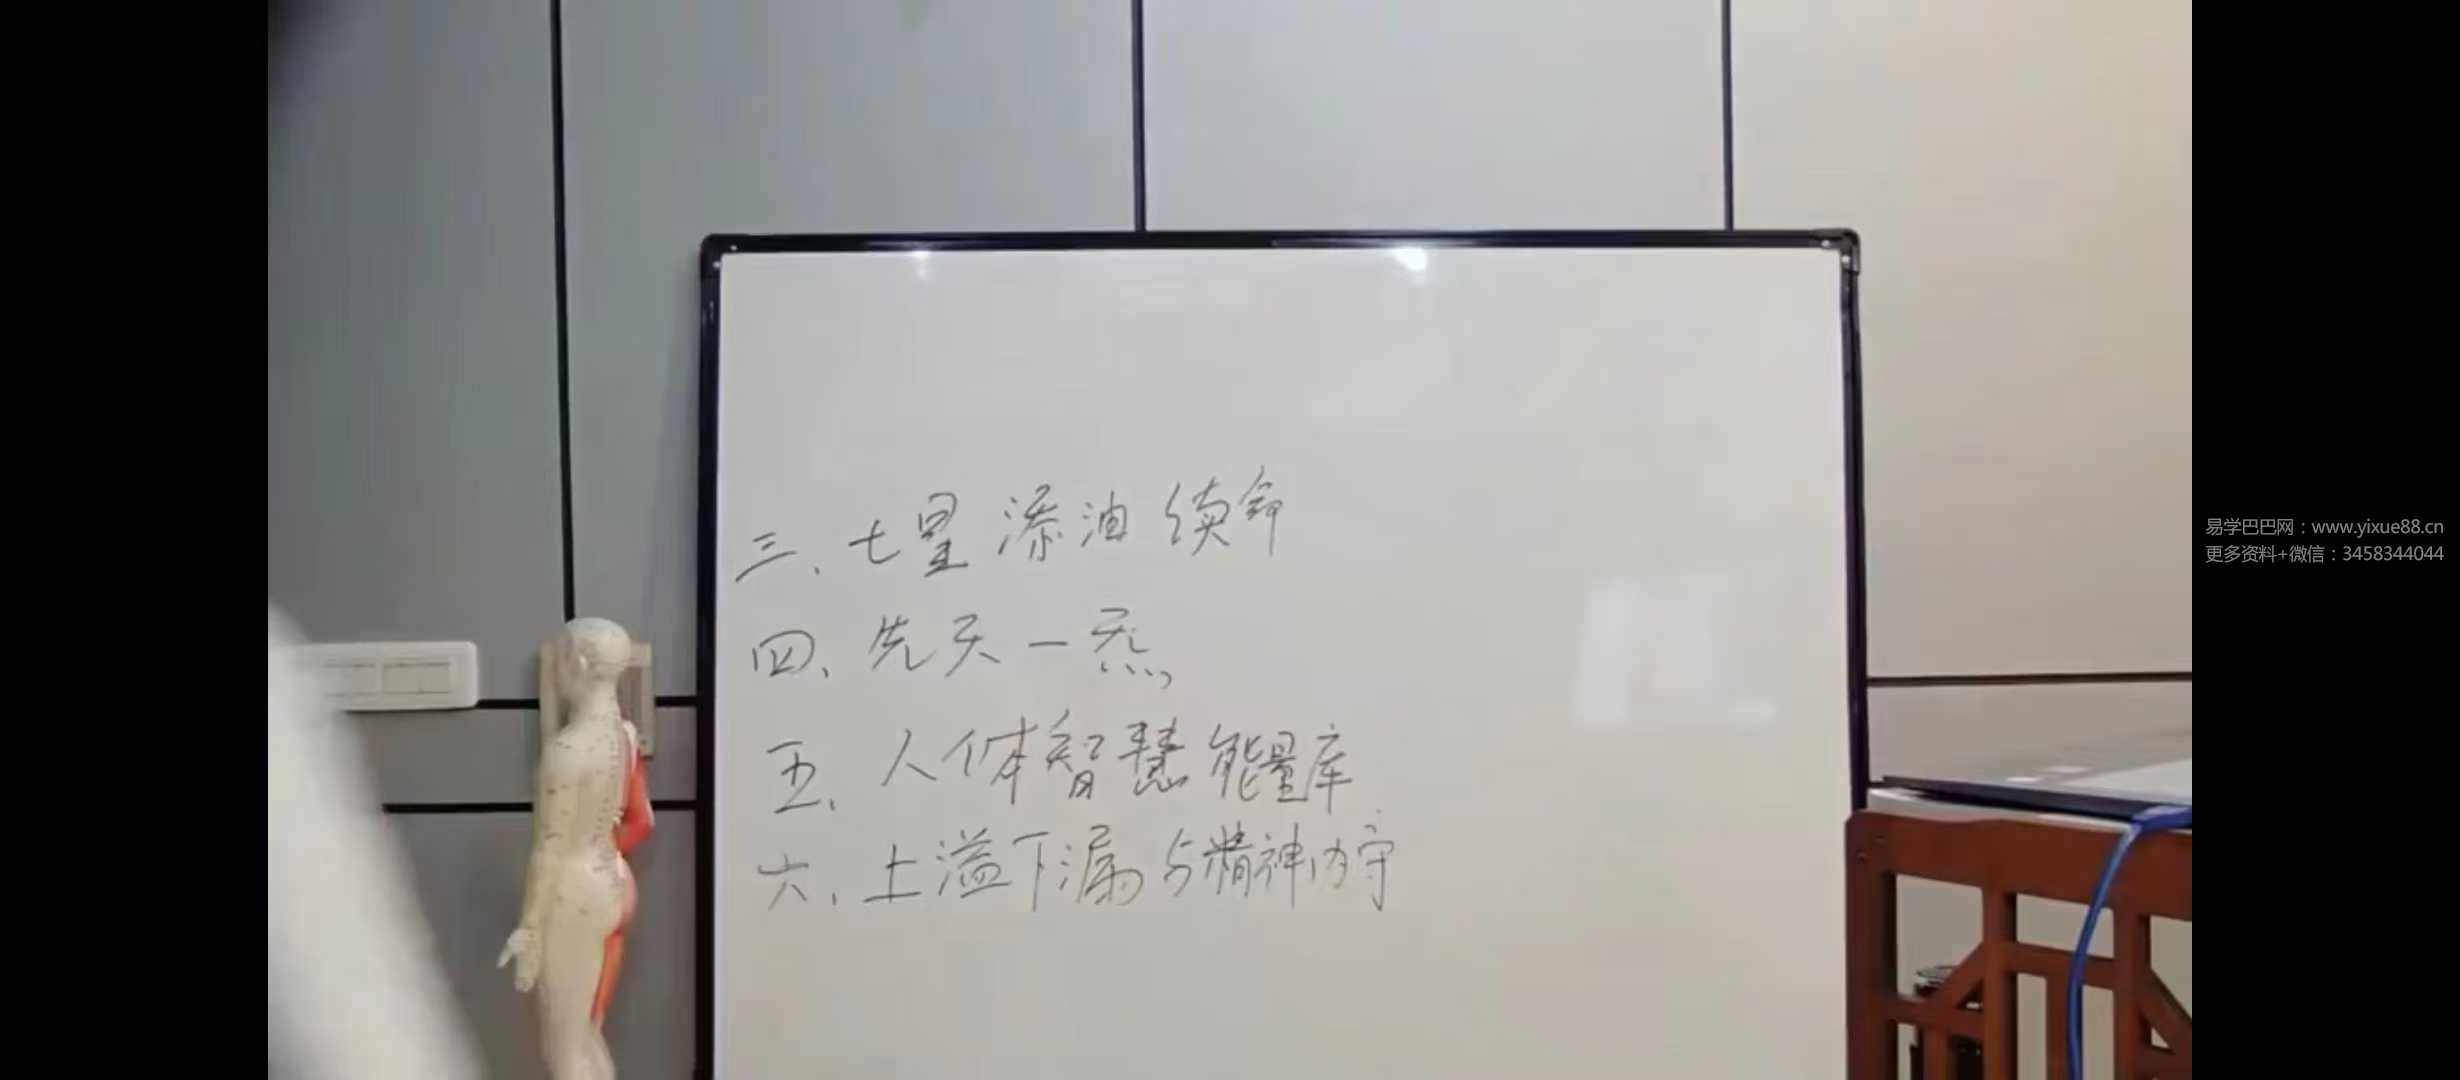 三、七星添油续命
四、先天一炁
五、人体智慧能量库
六、上溢下漏与精神内守
易学巴巴网：www.yixue88.cn
更多资料+微信：3458344044